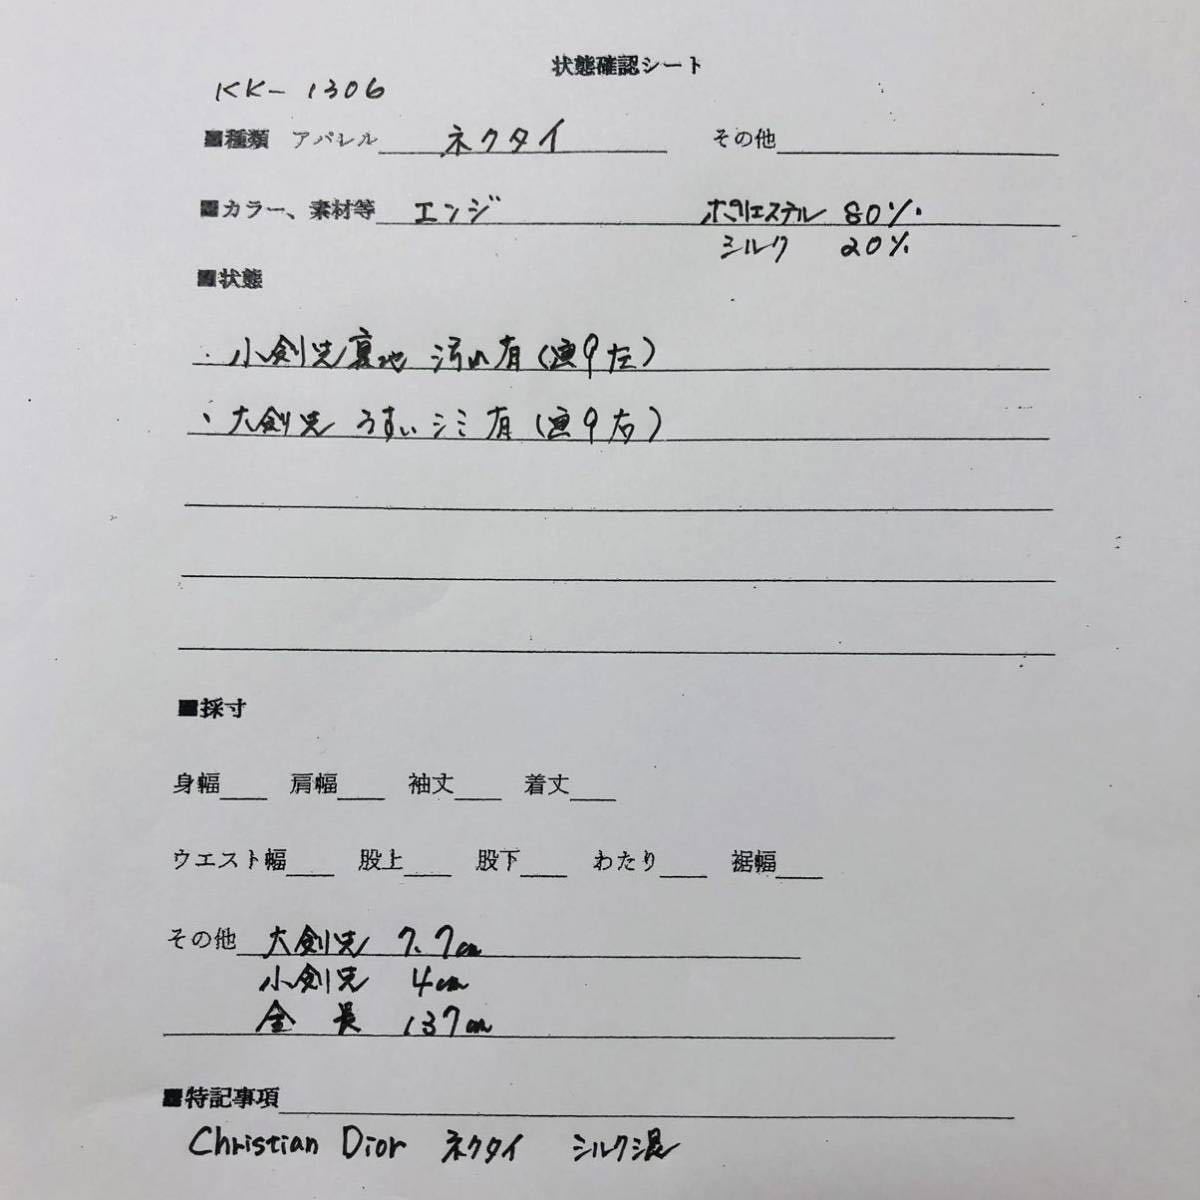 状態確認シート
KK-1306
■種類 アパレル ネクタイ その他
■カラー、素材等 エンジ ポリエステル 80%
シルク 20%
■状態
・小剣先裏地 汚れ有(画9左)
・大剣先 うすいシミ有(画9右)
■採寸
身幅 肩幅 袖丈 着丈
ウエスト幅 股上 股下 わたり 裾幅
その他 大剣先 7.7cm
小剣先 4cm
全長 137cm
■特記事項
Christian Dior ネクタイ シルク混